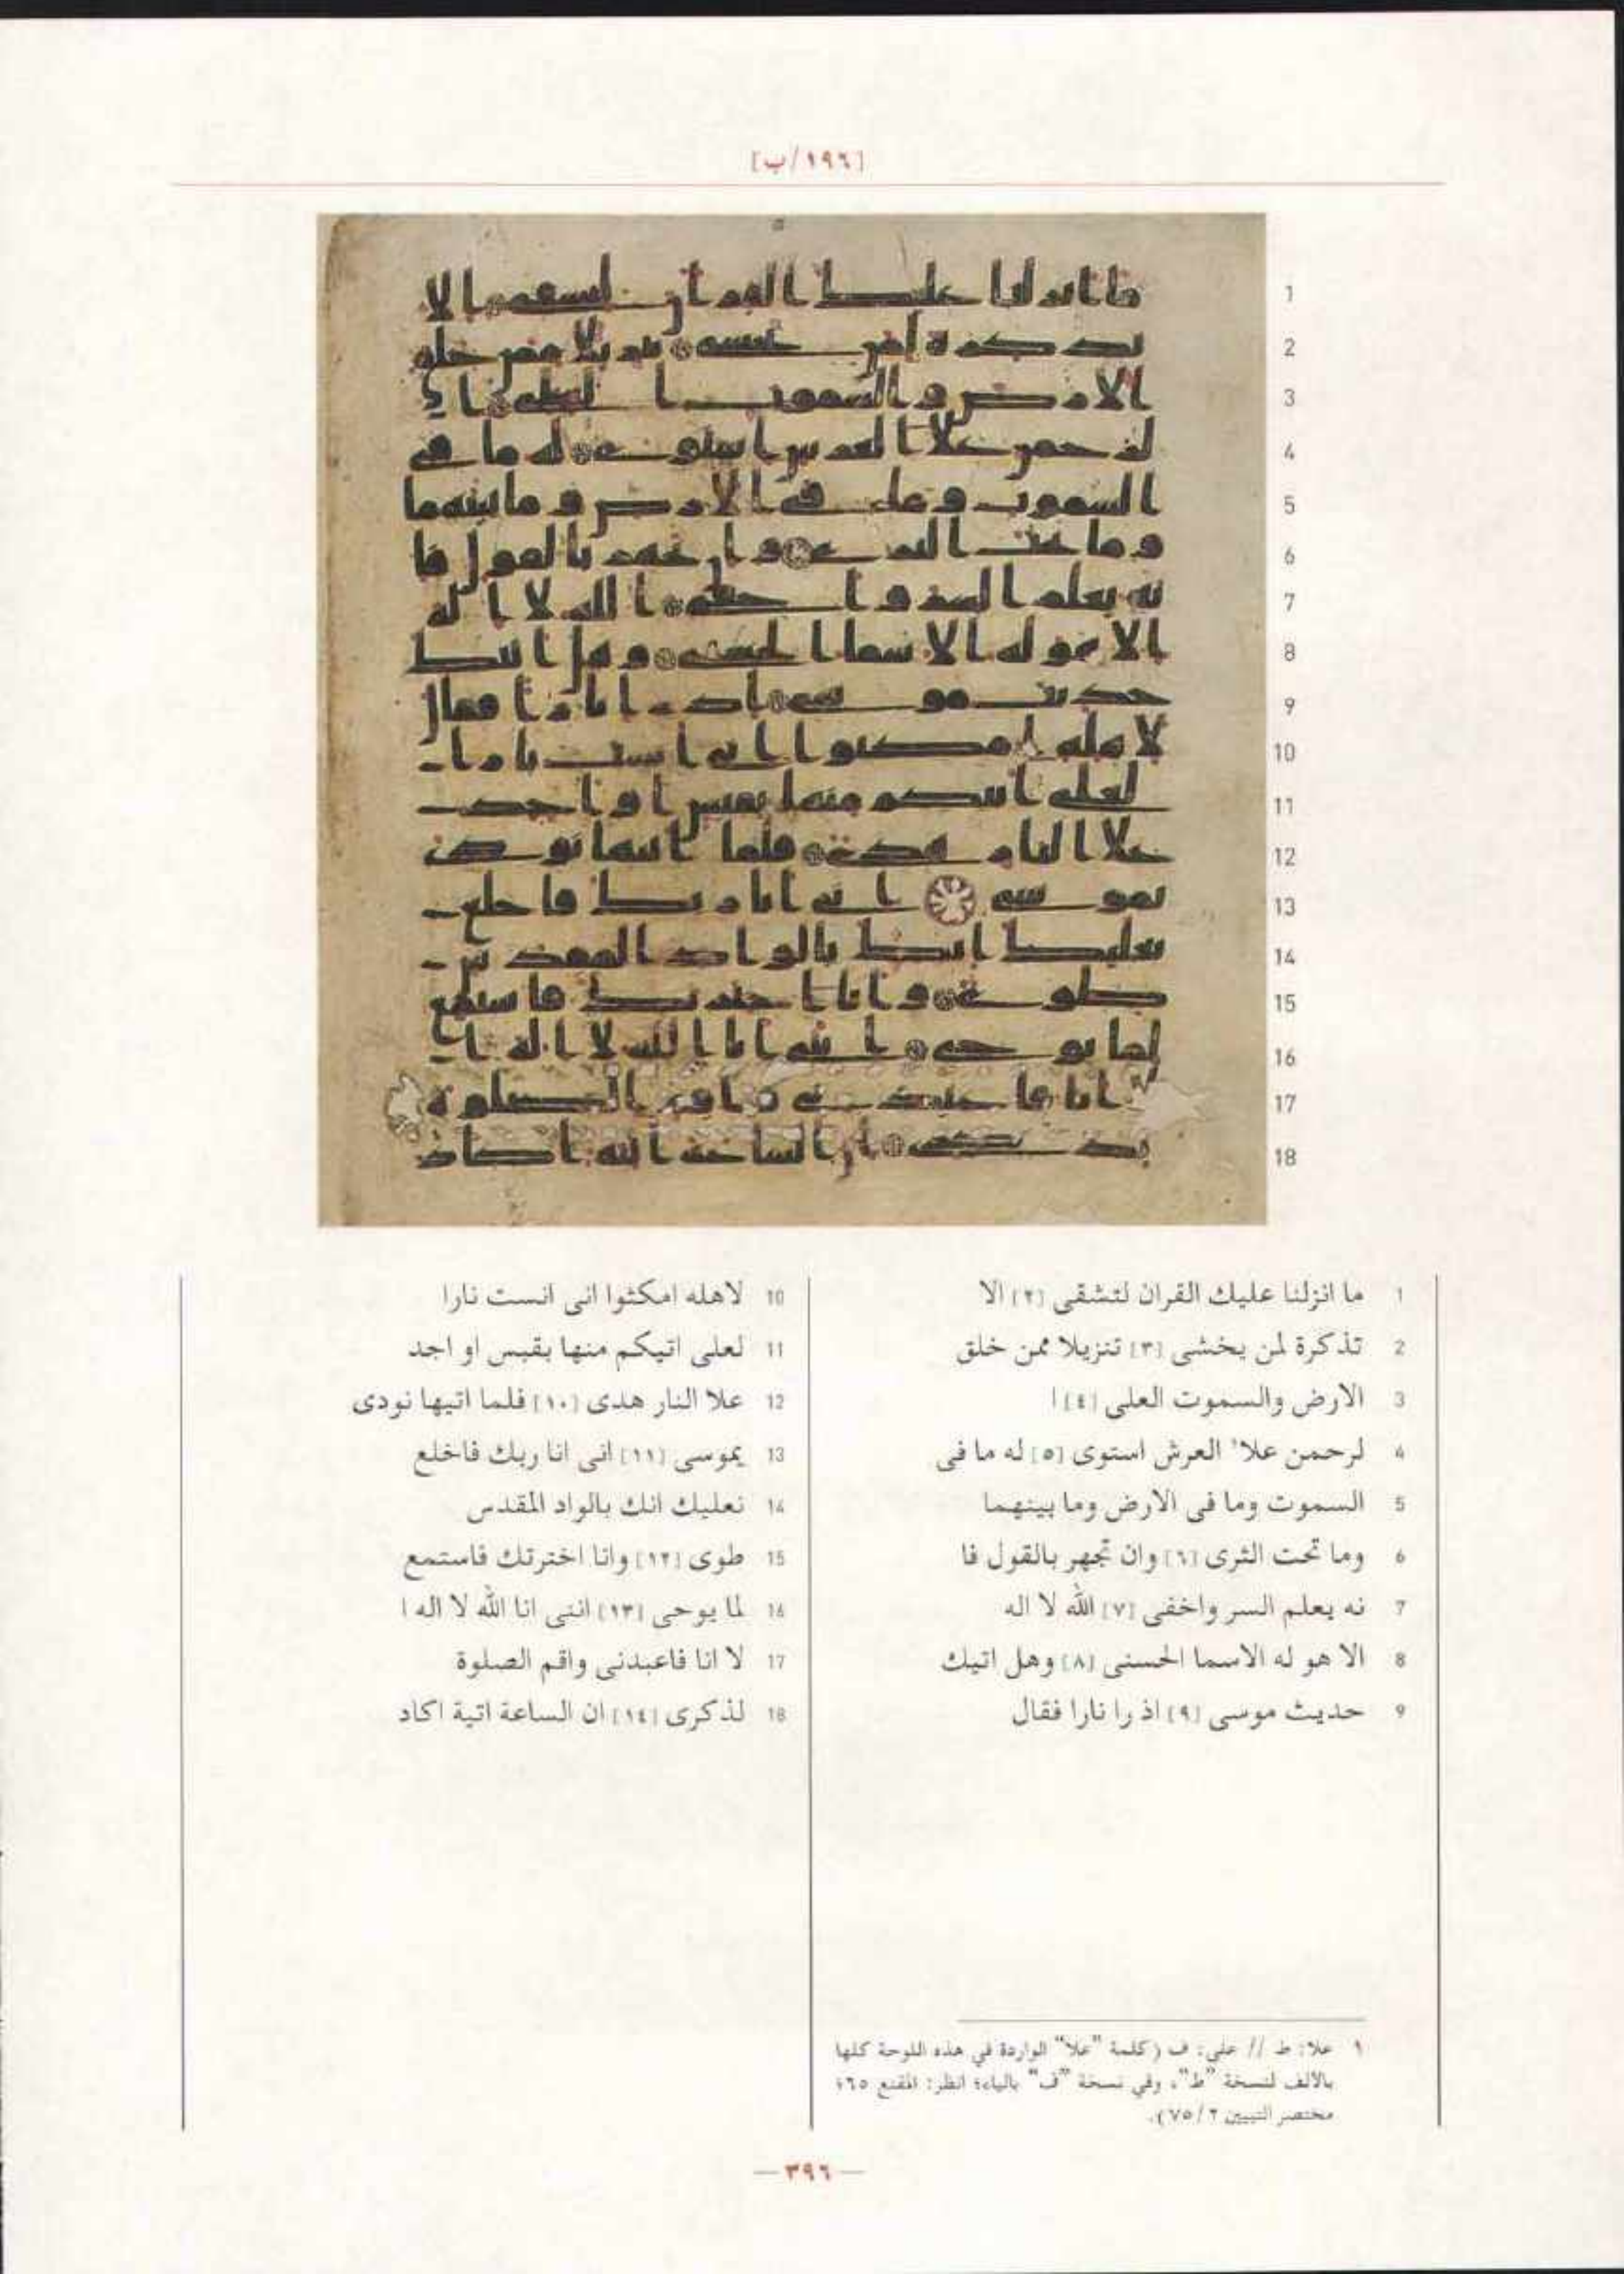 [١٩٦/ب]
1 ما انزلنا عليك القران لتشقى [٢] الا
2 تذكرة لمن يخشى [٣] تنزيلا ممن خلق
3 الارض والسموت العلى [٤] ا
4 لرحمن علا١ العرش استوى [٥] له ما فى
5 السموت وما فى الارض وما بينهما
6 وما تحت الثرى [٦] وان تجهر بالقول فا
7 نه يعلم السر واخفى [٧] الله لا اله
8 الا هو له الاسما الحسنى [٨] وهل اتيك
9 حديث موسى [٩] اذ را نارا فقال
10 لاهله امكثوا انى انست نارا
11 لعلى اتيكم منها بقبس او اجد
12 علا النار هدى [١٠] فلما اتيها نودى
13 يموسى [١١] انى انا ربك فاخلع
14 نعليك انك بالواد المقدس
15 طوى [١٢] وانا اخترتك فاستمع
16 لما يوحى [١٣] اننى انا الله لا اله ا
17 لا انا فاعبدنى واقم الصلوة
18 لذكرى [١٤] ان الساعة اتية اكاد
١ علا: ط // على: ف (كلمة "علا" الواردة في هذه اللوحة كلها
بالالف لنسخة "ط"، وفي نسخة "ف" بالياء؛ انظر: المقنع ٦٥؛
مختصر التبيين ٢/ ٧٥).
— ٣٩٦ —